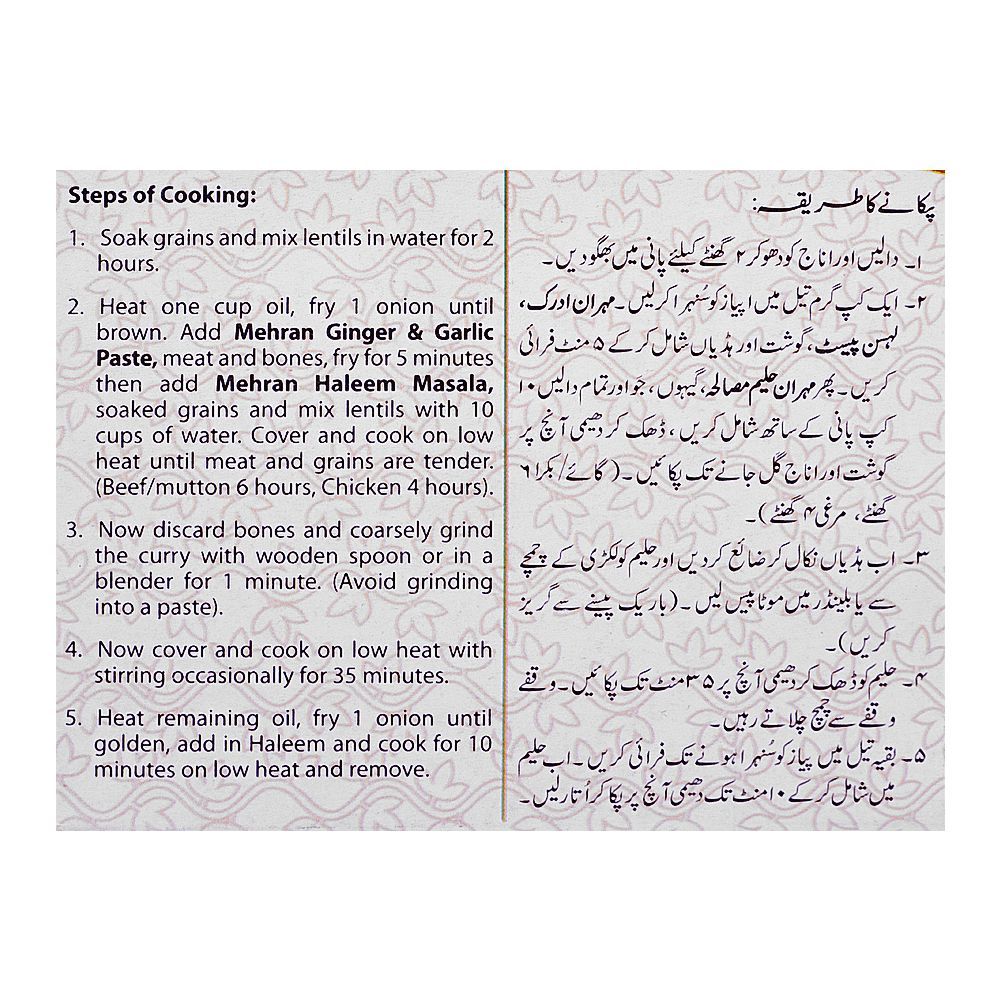 Steps of Cooking:
1. Soak grains and mix lentils in water for 2
hours.
2. Heat one cup oil, fry 1 onion until
brown. Add Mehran Ginger & Garlic
Paste, meat and bones, fry for 5 minutes
then add Mehran Haleem Masala,
soaked grains and mix lentils with 10
cups of water. Cover and cook on low
heat until meat and grains are tender.
(Beef/mutton 6 hours, Chicken 4 hours).
3. Now discard bones and coarsely grind
the curry with wooden spoon or in a
blender for 1 minute. (Avoid grinding
into a paste).
4. Now cover and cook on low heat with
stirring occasionally for 35 minutes.
5. Heat remaining oil, fry 1 onion until
golden, add in Haleem and cook for 10
minutes on low heat and remove.
پکانے کا طریقہ:
۱۔ دالیں اور اناج کو دھو کر ۲ گھنٹے کیلئے پانی میں بھگو دیں۔
۲۔ ایک کپ گرم تیل میں ۱ پیاز کو سُنہرا کرلیں۔ مہران ادرک،
لہسن پیسٹ، گوشت اور ہڈیاں شامل کر کے ۵ منٹ فرائی
کریں۔ پھر مہران حلیم مصالحہ، گیہوں، جَو اور تمام دالیں ۱۰
کپ پانی کے ساتھ شامل کریں، ڈھک کر دھیمی آنچ پر
گوشت اور اناج گل جانے تک پکائیں۔ (گائے/بکرا ۶
گھنٹے، مرغی ۴ گھنٹے)۔
۳۔ اب ہڈیاں نکال کر ضائع کردیں اور حلیم کو لکڑی کے چمچے
سے یا بلینڈر میں موٹا پیس لیں۔ (باریک پیسنے سے گریز
کریں)۔
۴۔ حلیم کو ڈھک کر دھیمی آنچ پر ۳۵ منٹ تک پکائیں۔ وقفے
وقفے سے چمچ چلاتے رہیں۔
۵۔ بقیہ تیل میں پیاز کو سُنہرا ہونے تک فرائی کریں۔ اب حلیم
میں شامل کر کے ۱۰ منٹ تک دھیمی آنچ پر پکا کر اُتار لیں۔